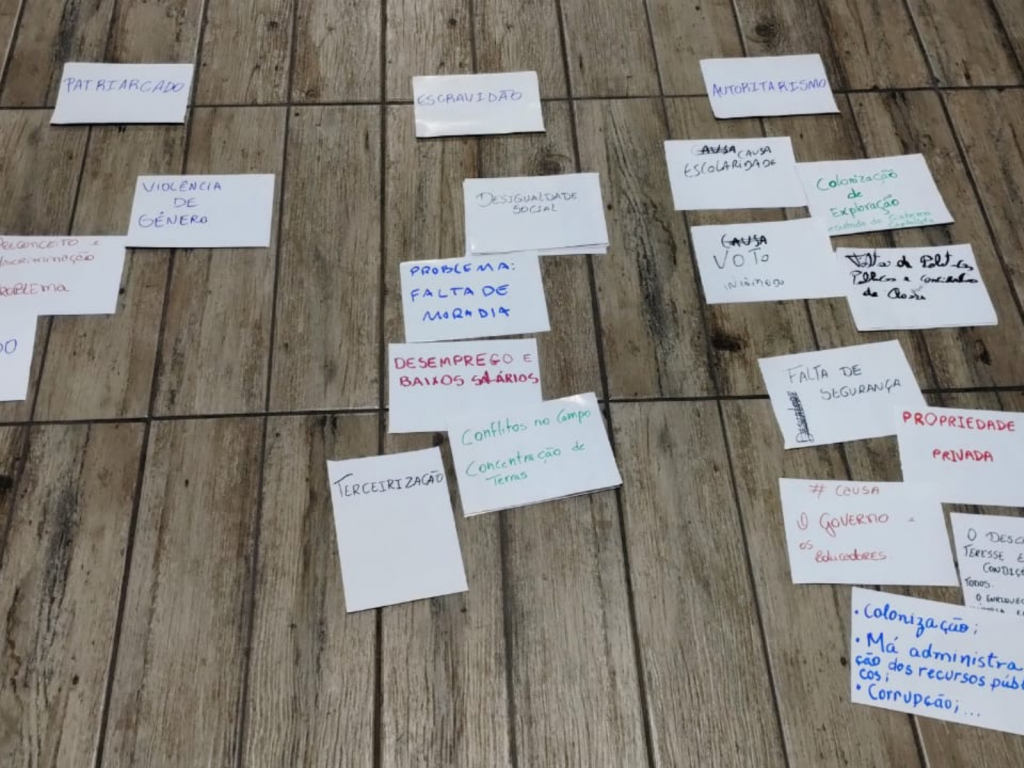 PATRIARCADO
VIOLÊNCIA
DE
GÊNERO
PROBLEMA
ESCRAVIDÃO
DESIGUALDADE
SOCIAL
PROBLEMA:
FALTA DE
MORADIA
DESEMPREGO E
BAIXOS SALÁRIOS
Conflitos no Campo
Concentração de
Terras
TERCEIRIZAÇÃO
AUTORITARISMO
CAUSA CAUSA
ESCOLARIDADE
Colonização
de
Exploração
CAUSA
VOTO
Falta de
FALTA DE
SEGURANÇA
PROPRIEDADE
PRIVADA
# CAUSA
O GOVERNO e
os
Educadores
O DESC
TERESSE E
CONDIÇ
TODOS.
• Colonização;
• Má administra
ção dos recursos públi
cos;
• Corrupção;...